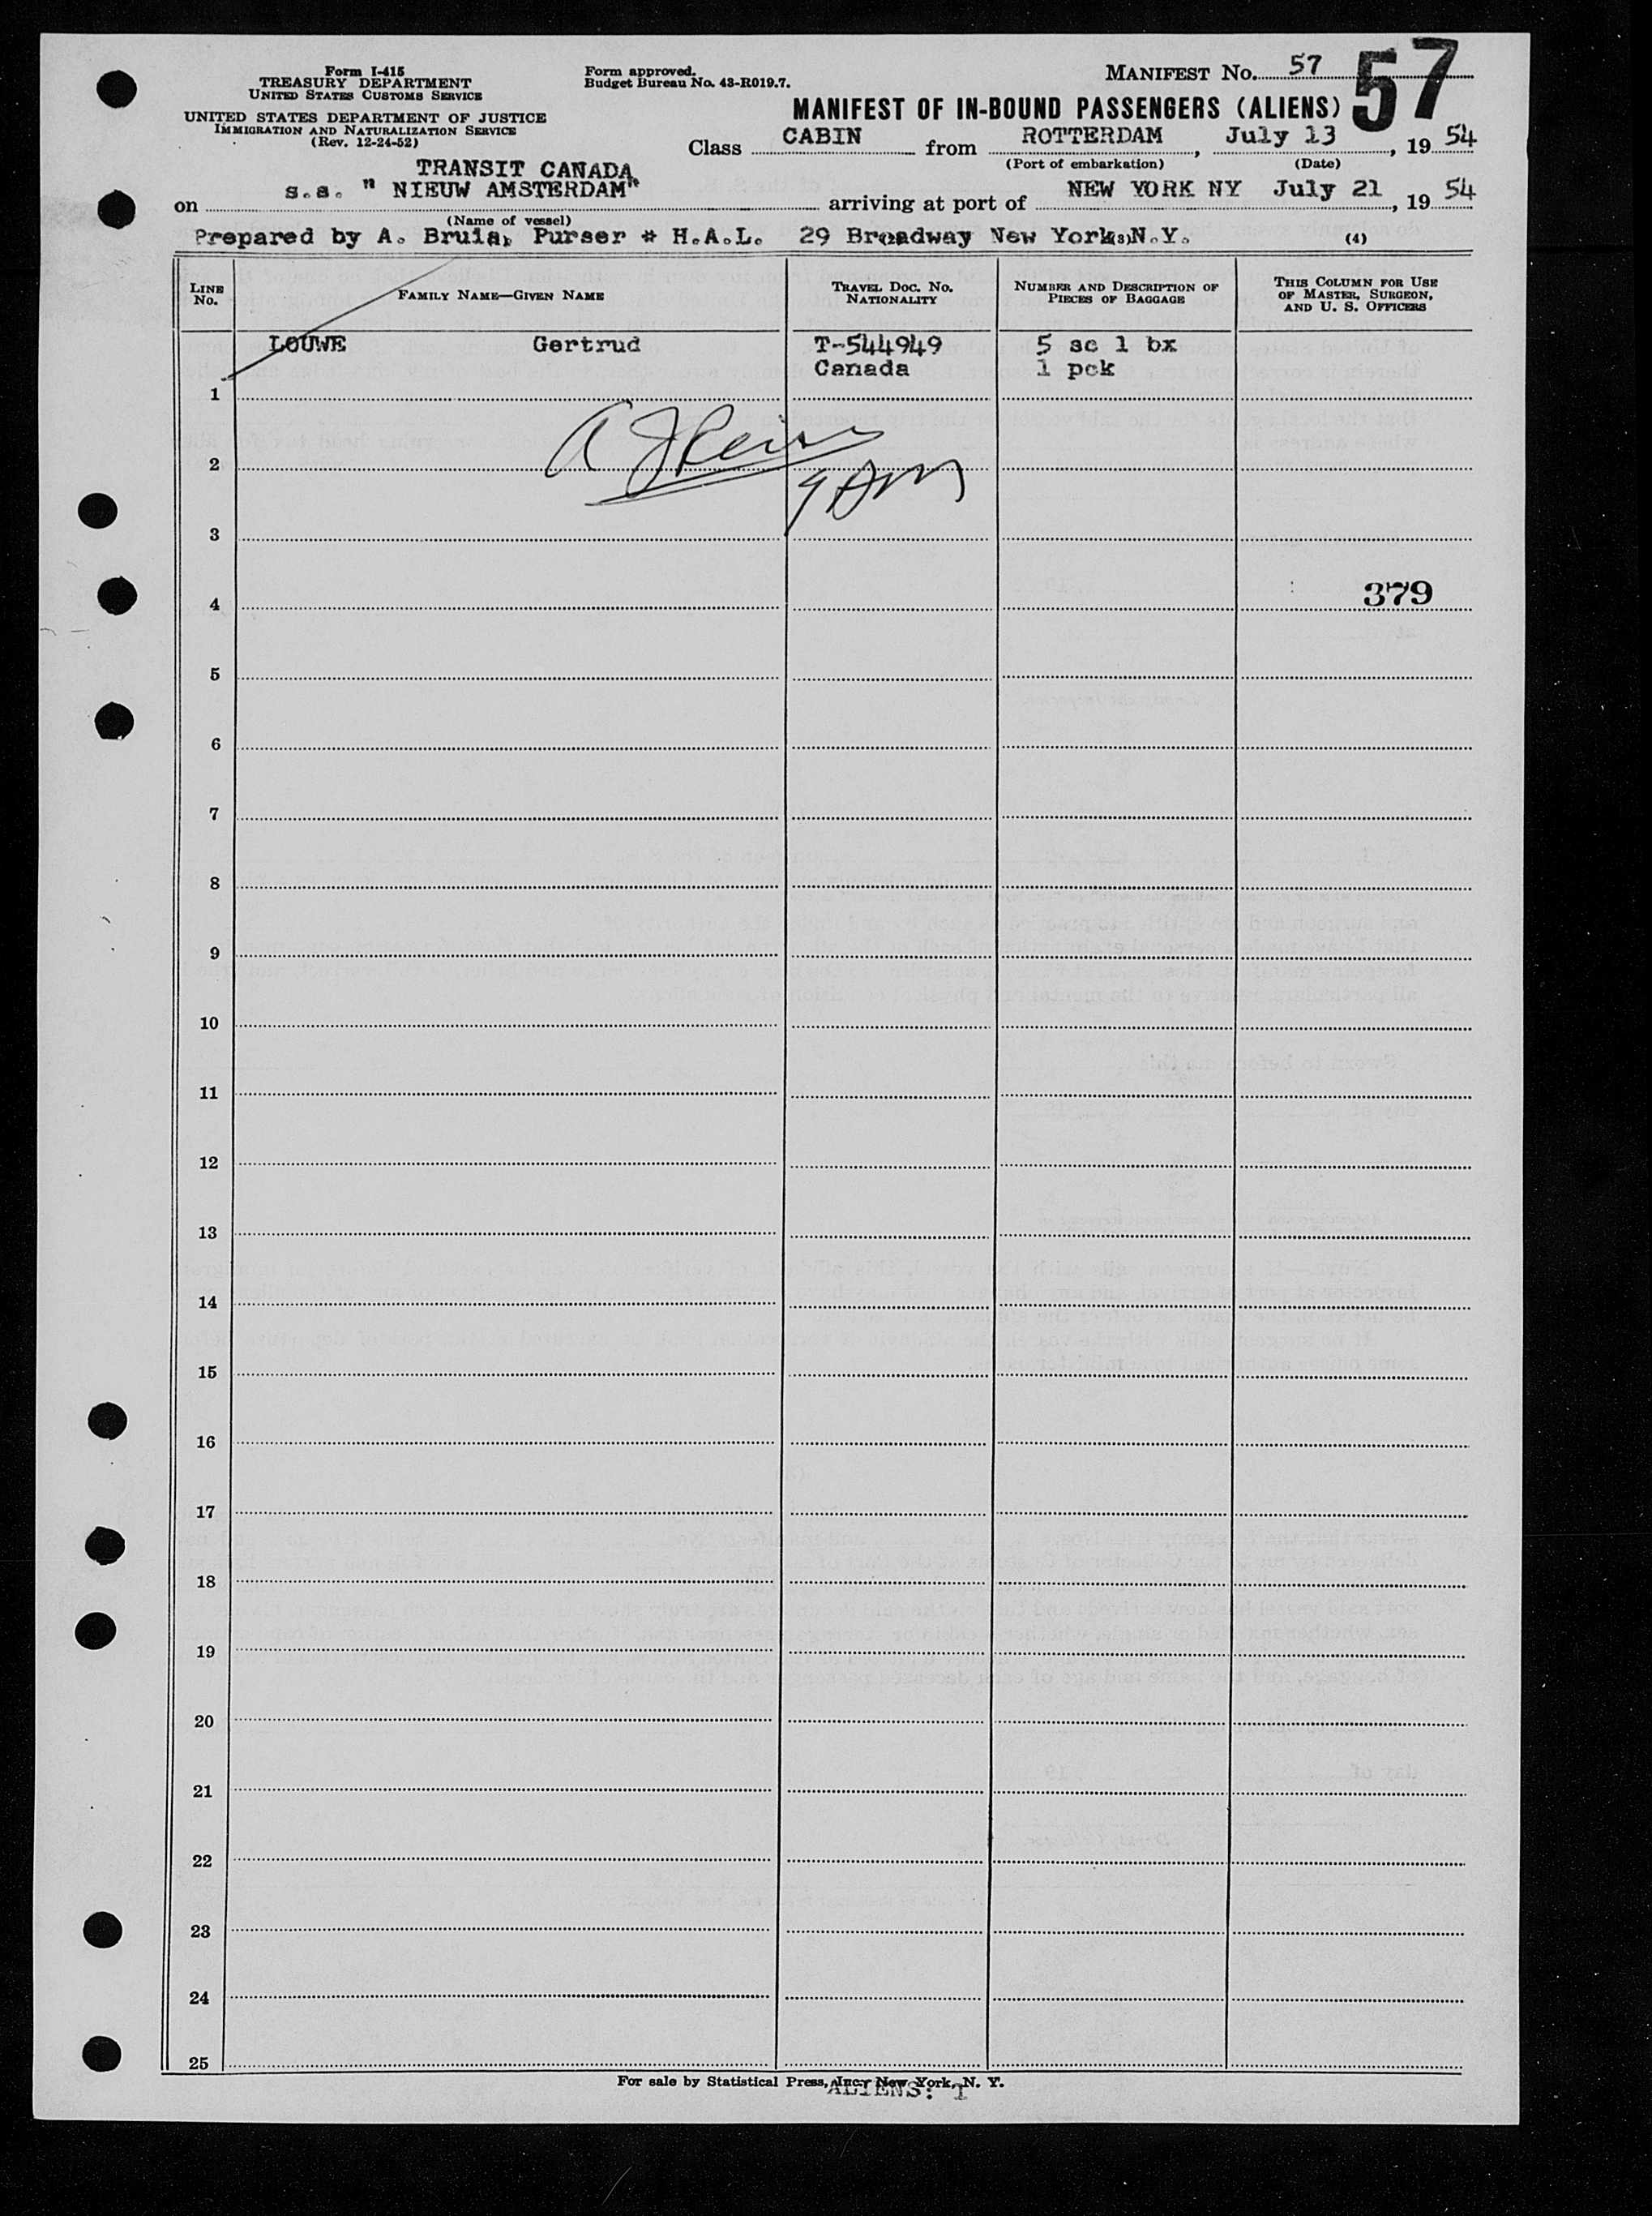 Form I-415
TREASURY DEPARTMENT
UNITED STATES CUSTOMS SERVICE
UNITED STATES DEPARTMENT OF JUSTICE
IMMIGRATION AND NATURALIZATION SERVICE
(Rev. 12-24-52)
Form approved.
Budget Bureau No. 43-R019.7.
MANIFEST No. 57 57
MANIFEST OF IN-BOUND PASSENGERS (ALIENS)
Class CABIN from ROTTERDAM, July 13, 19 54
(Port of embarkation) (Date)
TRANSIT CANADA
on s.s. " NIEUW AMSTERDAM" arriving at port of NEW YORK NY July 21, 19 54
(Name of vessel)
Prepared by A. Bruis, Purser * H.A.L. 29 Broadway New York N.Y.
(3) (4)
LINE No. FAMILY NAME—GIVEN NAME TRAVEL DOC. NO. NATIONALITY NUMBER AND DESCRIPTION OF PIECES OF BAGGAGE THIS COLUMN FOR USE OF MASTER, SURGEON, AND U. S. OFFICERS
LOUWE Gertrud T-544949 5 sc 1 bx
Canada 1 pck
1
2
3
4 379
5
6
7
8
9
10
11
12
13
14
15
16
17
18
19
20
21
22
23
24
25
For sale by Statistical Press, Inc., New York, N. Y.
ALIENS: 1